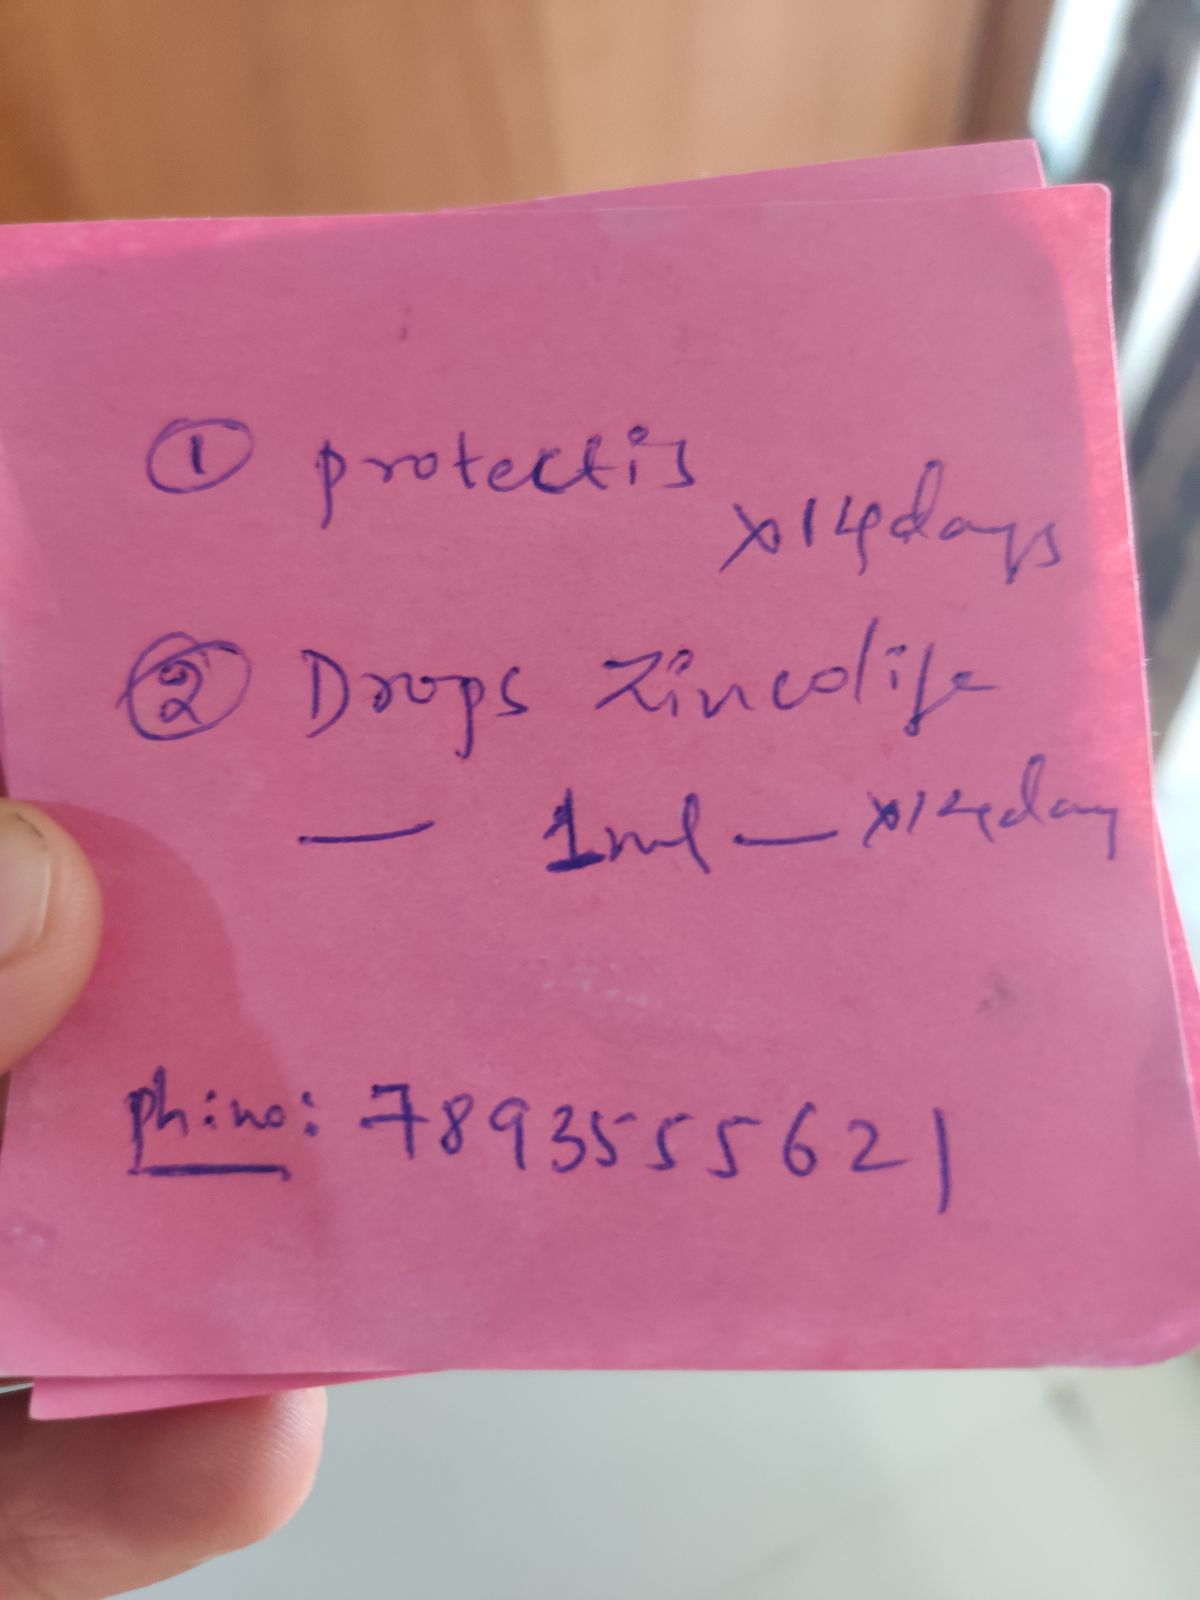 ① protectis
x14days
② Drops Zincolife
— 1ml — x14day
ph:no: 7893555621